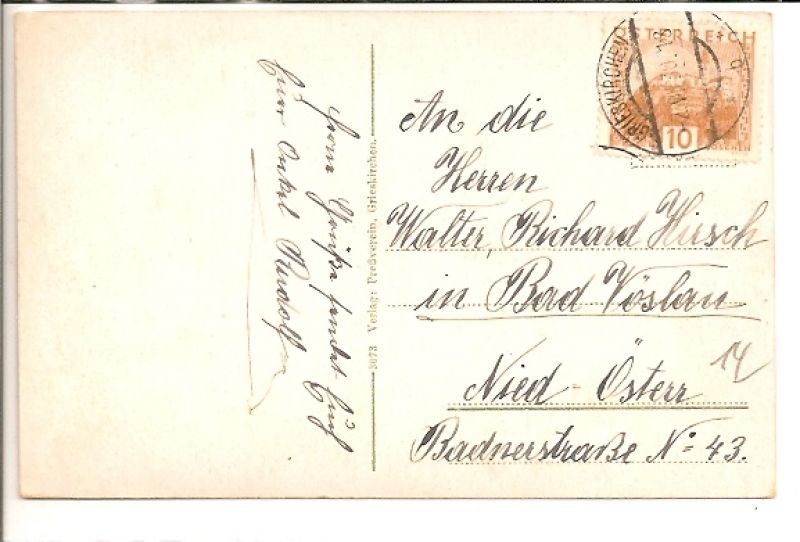 Frohe Grüße sendet Euch
Euer Onkel Rudolf
3073 Verlag: Preßverein, Grieskirchen.
ÖSTERREICH
10
GROSCHEN
GRIESKIRCHEN
An die
Herren
Walter, Richard Hirsch
in Bad Vöslau
Nied-Österr
14
Badnerstraße No 43.